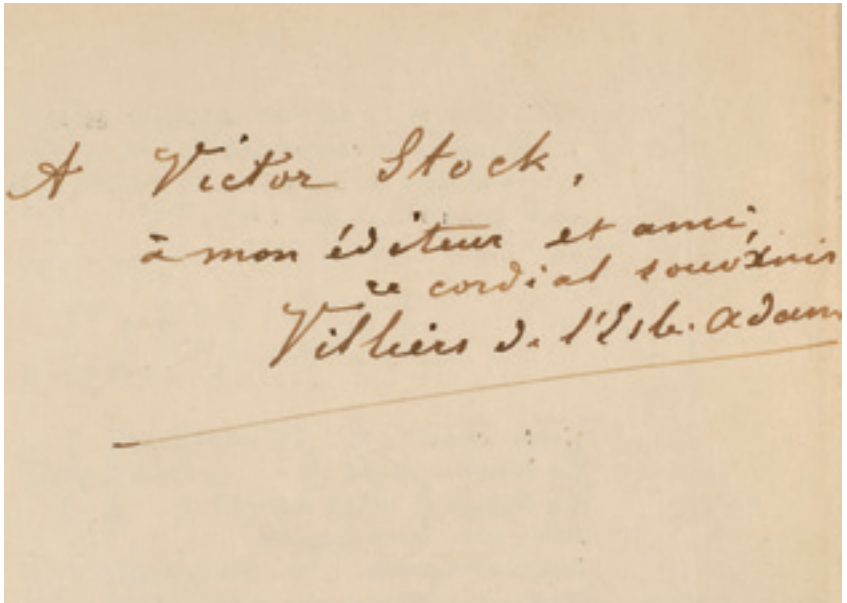 A Victor Stock,
à mon éditeur et ami,
ce cordial souvenir
Villiers de l'Isle-Adam